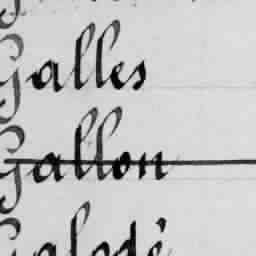 Galles
Gallon
Galodé